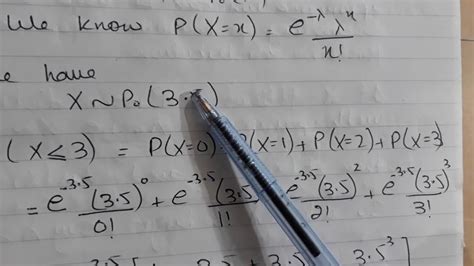 We know P(X=x) = e^-λ λ^x / x!
have
X ~ Po (3.5)
(X ≤ 3) = P(X=0) P(X=1) + P(X=2) + P(X=3)
= e^-3.5 (3.5)^0 / 0! + e^-3.5 (3.5) / 1! e^-3.5 (3.5)^2 / 2! + e^-3.5 (3.5)^3 / 3!
3.5 3.5^3 ]